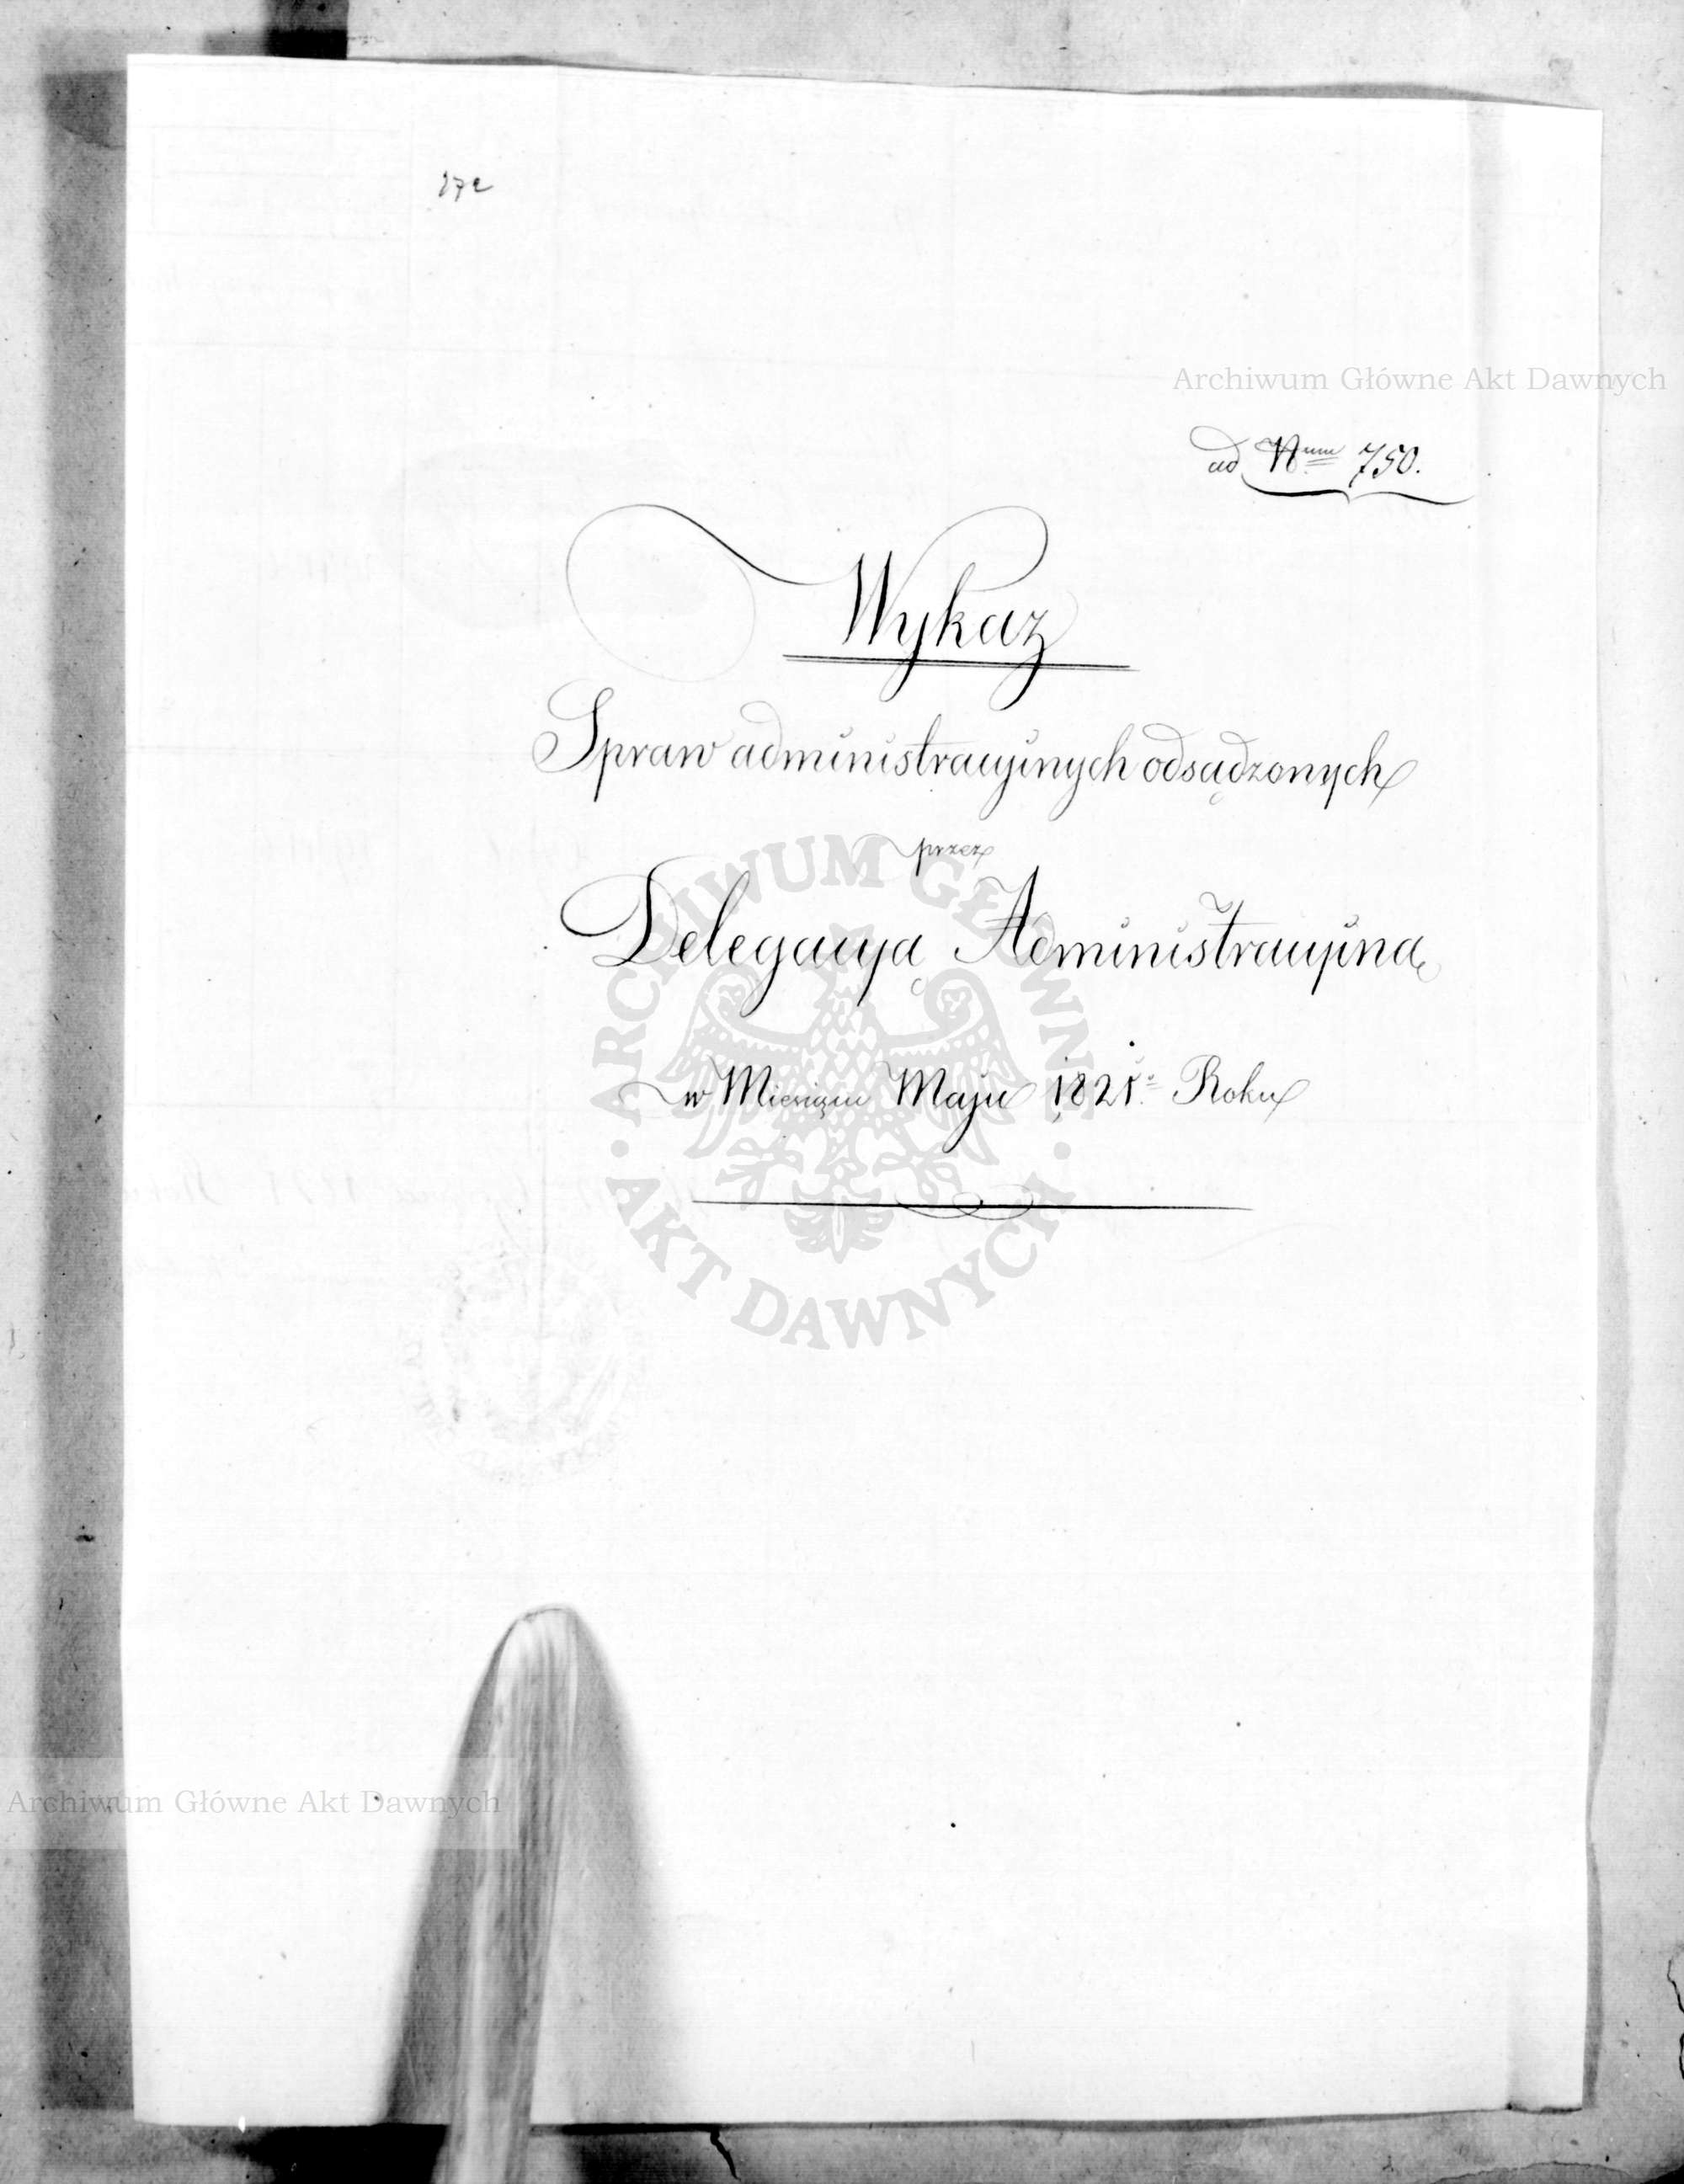 172
Archiwum Główne Akt Dawnych
ad Num 750.
Wykaz
Spraw administracyinych odsądzonych
przez
Delegacyą Administracyiną
w Miesiącu Maju 1821.o Roku
ARCHIWUM GŁÓWNE
AKT DAWNYCH
Archiwum Główne Akt Dawnych